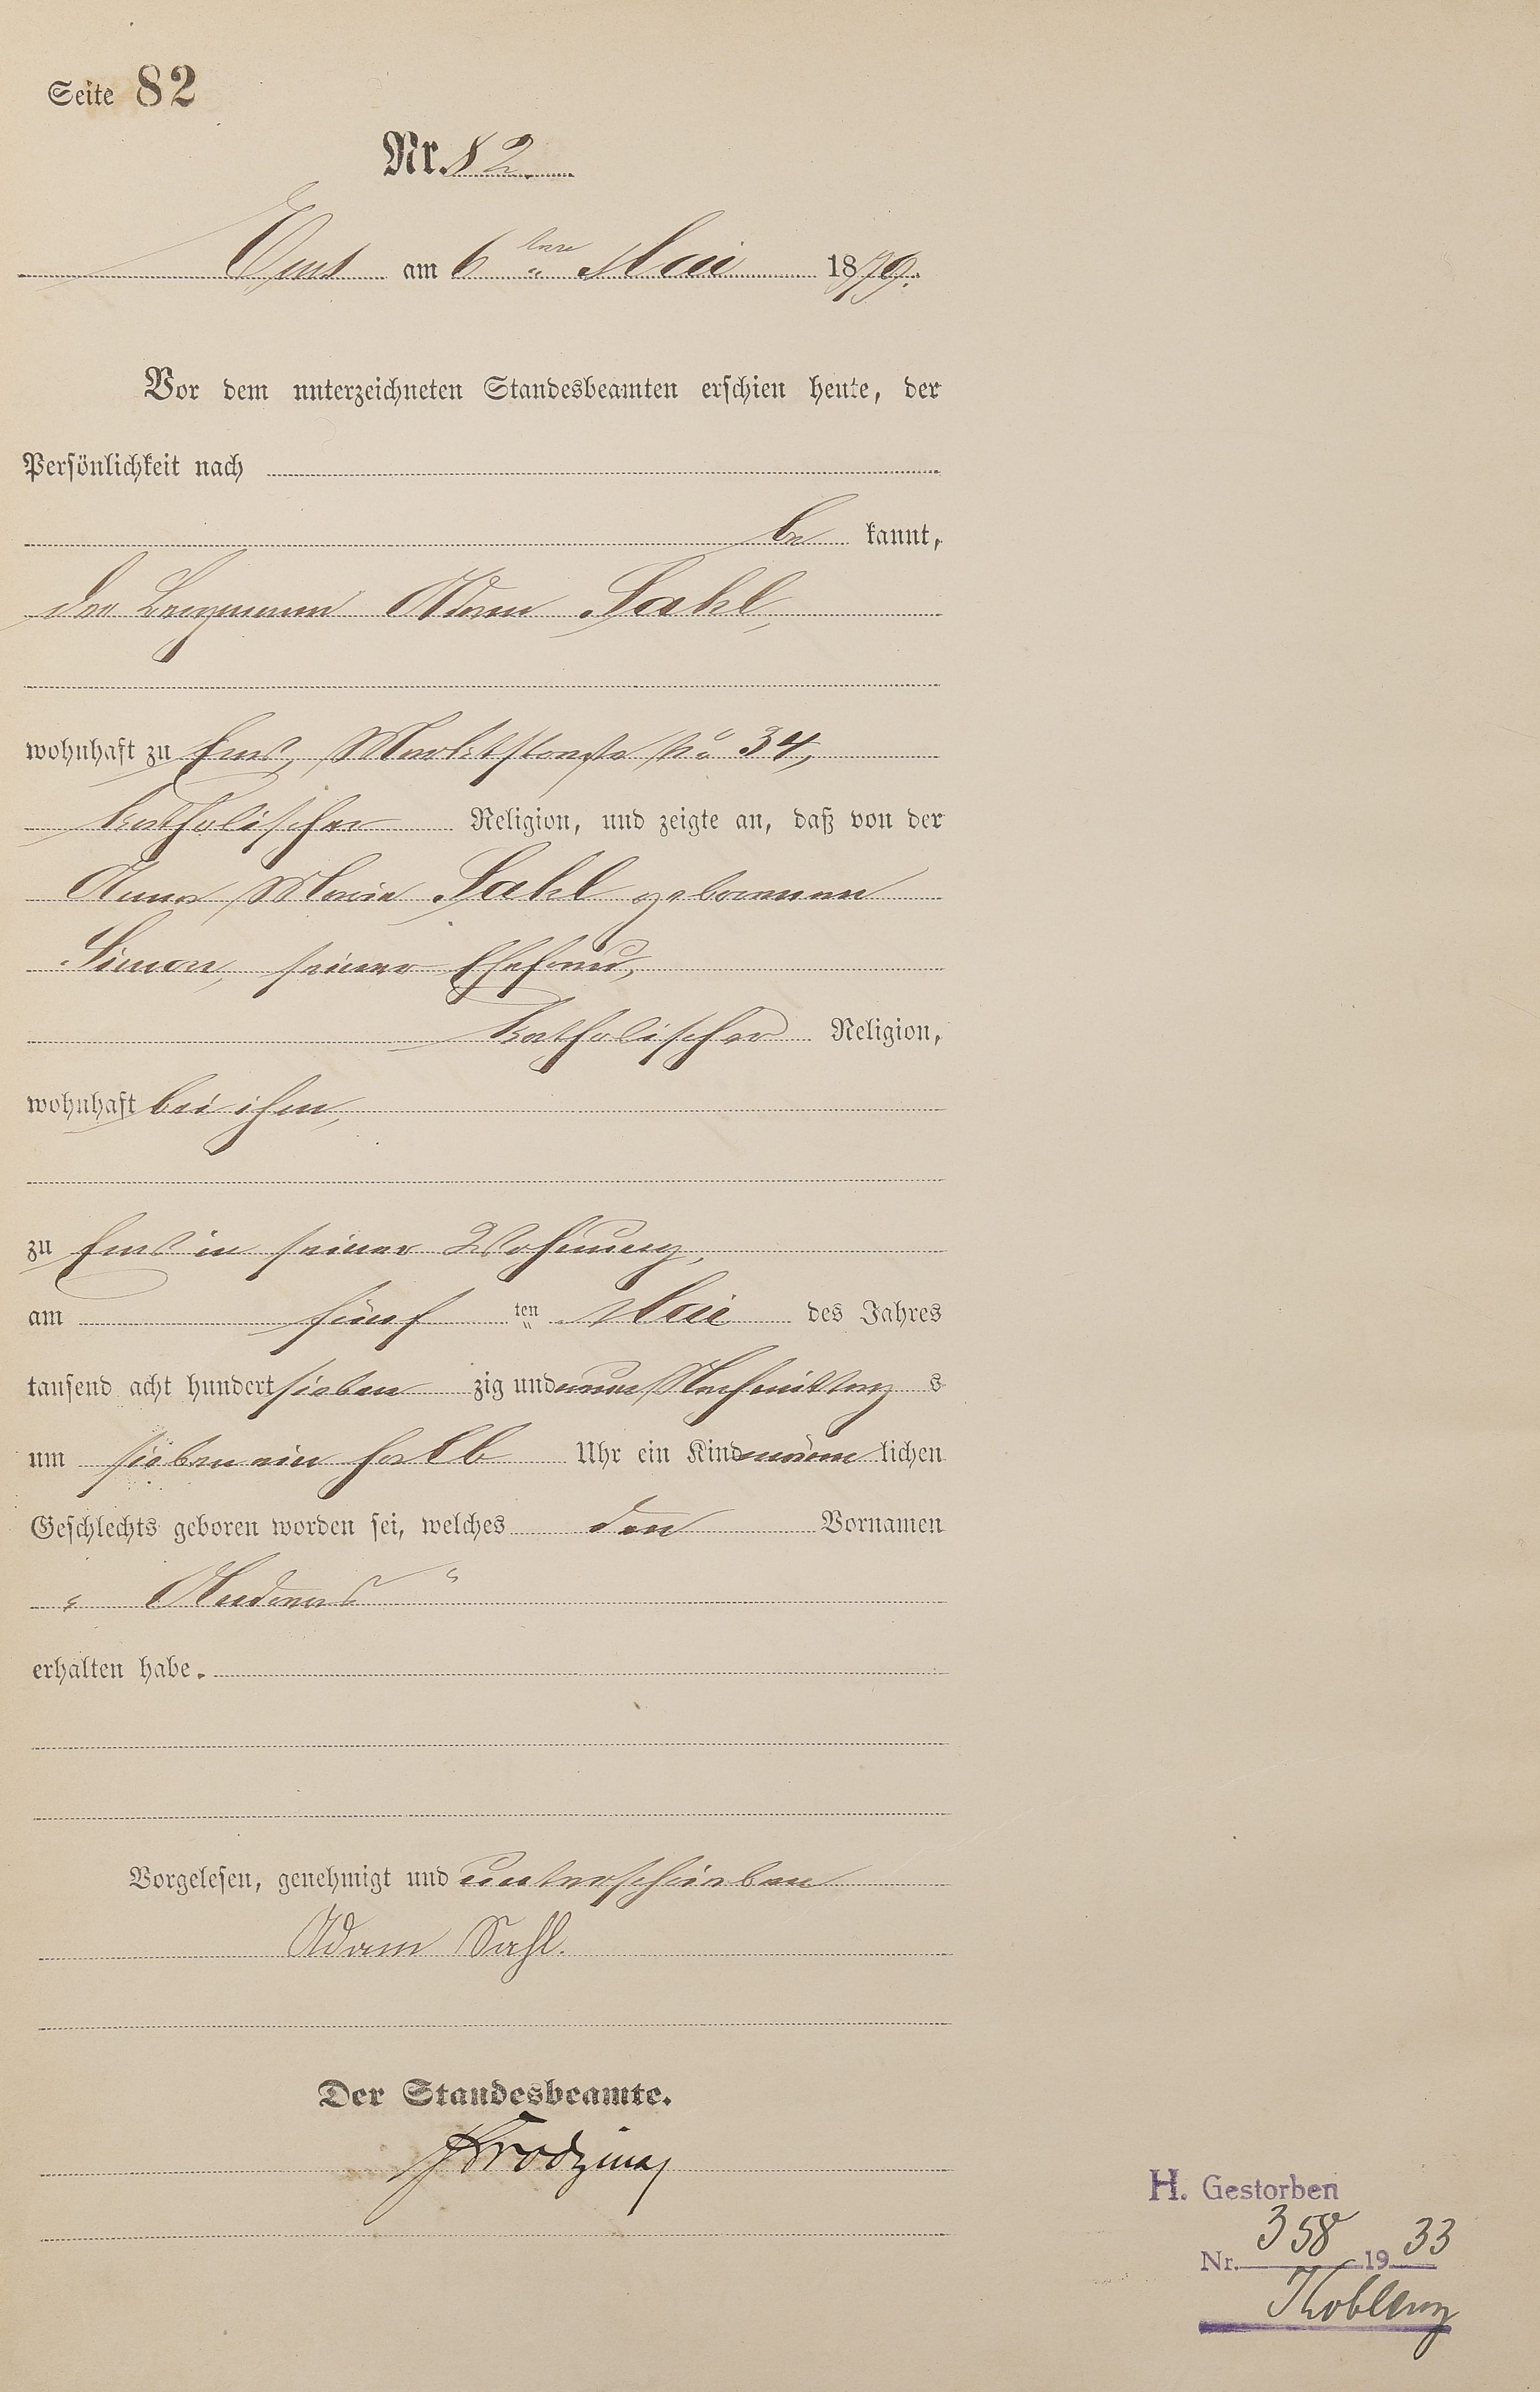 Seite 82
Nr. 82.
Ems am 6ten Mai 1879.
Vor dem unterzeichneten Standesbeamten erschien heute, der
Persönlichkeit nach
be kannt,
der Bergmann Adam Sahl,
wohnhaft zu Ems, Marktstraße No 34,
katholischer Religion, und zeigte an, daß von der
Anna Maria Sahl geborenen
Simon, seiner Ehefrau,
katholischer Religion,
wohnhaft bei ihm,
zu Ems in seiner Wohnung,
am fünf ten Mai des Jahres
tausend acht hundert sieben zig und neun Nachmittag s
um sieben ein halb Uhr ein Kind männ lichen
Geschlechts geboren worden sei, welches den Vornamen
" Andreas "
erhalten habe.
Vorgelesen, genehmigt und unterschrieben
Adam Sahl.
Der Standesbeamte.
H. Gestorben
Nr. 358 1933
Koblenz